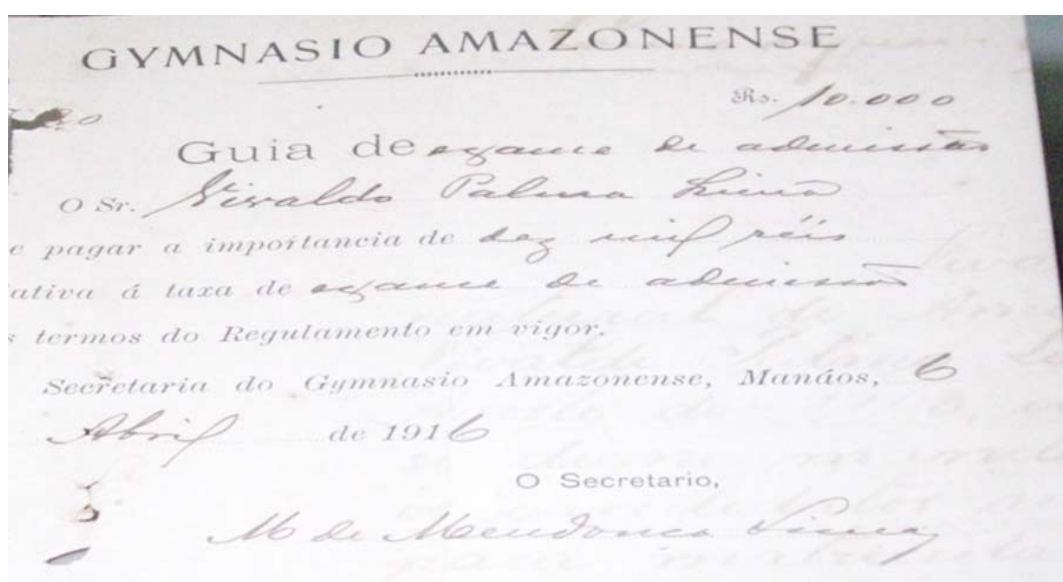 GYMNASIO AMAZONENSE
Rs. 10.000
Guia de exame de admissão
O Sr. Vivaldo Palma Lima
e pagar a importancia de dez mil réis
ativa á taxa de exame de admissão
s termos do Regulamento em vigor.
Secretaria do Gymnasio Amazonense, Manáos, 6
Abril de 1916
O Secretario,
M de Mendonca Lima